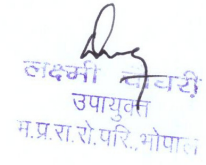 लक्ष्मी चौवरी
उपायुक्त
म.प्र.रा.रो.परि.,भोपाल